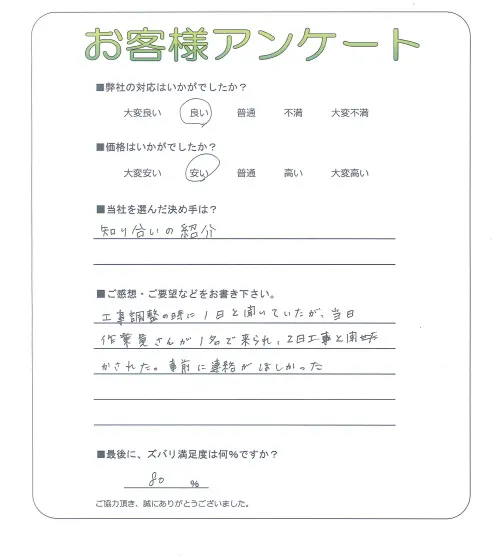 お客様アンケート
■弊社の対応はいかがでしたか？
大変良い 良い 普通 不満 大変不満
■価格はいかがでしたか？
大変安い 安い 普通 高い 大変高い
■当社を選んだ決め手は？
知り合いの紹介
■ご感想・ご要望などをお書き下さい。
工事調整の時に1日と聞いていたが、当日
作業員さんが1名で来られ、2日工事と聞
かされた。事前に連絡がほしかった
■最後に、ズバリ満足度は何％ですか？
80 ％
ご協力頂き、誠にありがとうございました。